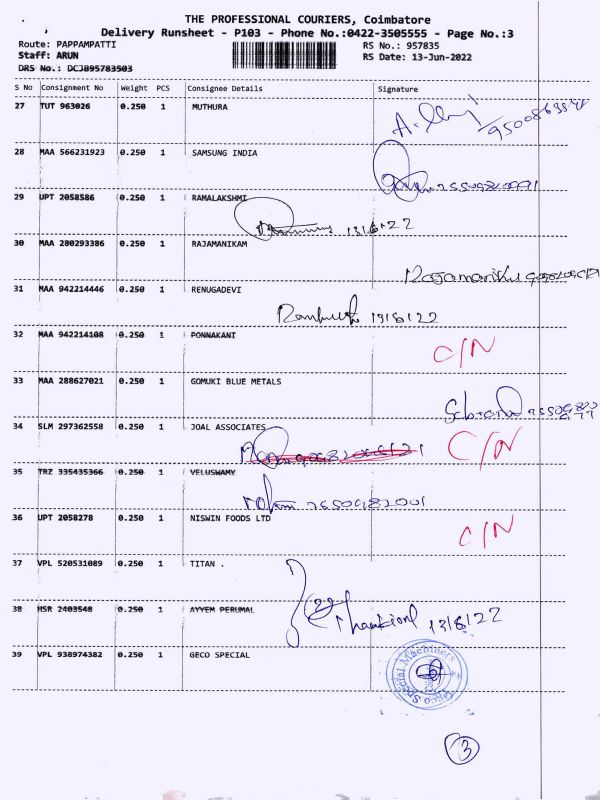 THE PROFESSIONAL COURIERS, Coimbatore
Delivery Runsheet - P103 - Phone No.:0422-3505555 - Page No.:3
Route: PAPPAMPATTI RS No.: 957835
Staff: ARUN RS Date: 13-Jun-2022
DRS No.: DCJB95783503
S No Consignment No Weight PCS Consignee Details Signature
27 TUT 963026 0.250 1 MUTHURA
28 MAA 566231923 0.250 1 SAMSUNG INDIA
29 UPT 2058586 0.250 1 RAMALAKSHMI
13/6/22
30 MAA 280293386 0.250 1 RAJAMANIKAM
31 MAA 942214446 0.250 1 RENUGADEVI
13/6/22
32 MAA 942214108 0.250 1 PONNAKANI C/N
33 MAA 288627021 0.250 1 GOMUKI BLUE METALS
34 SLM 297362558 0.250 1 JOAL ASSOCIATES C/N
35 TRZ 335435366 0.250 1 VELUSWAMY
36 UPT 2058278 0.250 1 NISWIN FOODS LTD C/N
37 VPL 520531089 0.250 1 TITAN .
38 HSR 2403548 0.250 1 AYYEM PERUMAL 13/6/22
39 VPL 938974382 0.250 1 GECO SPECIAL
3